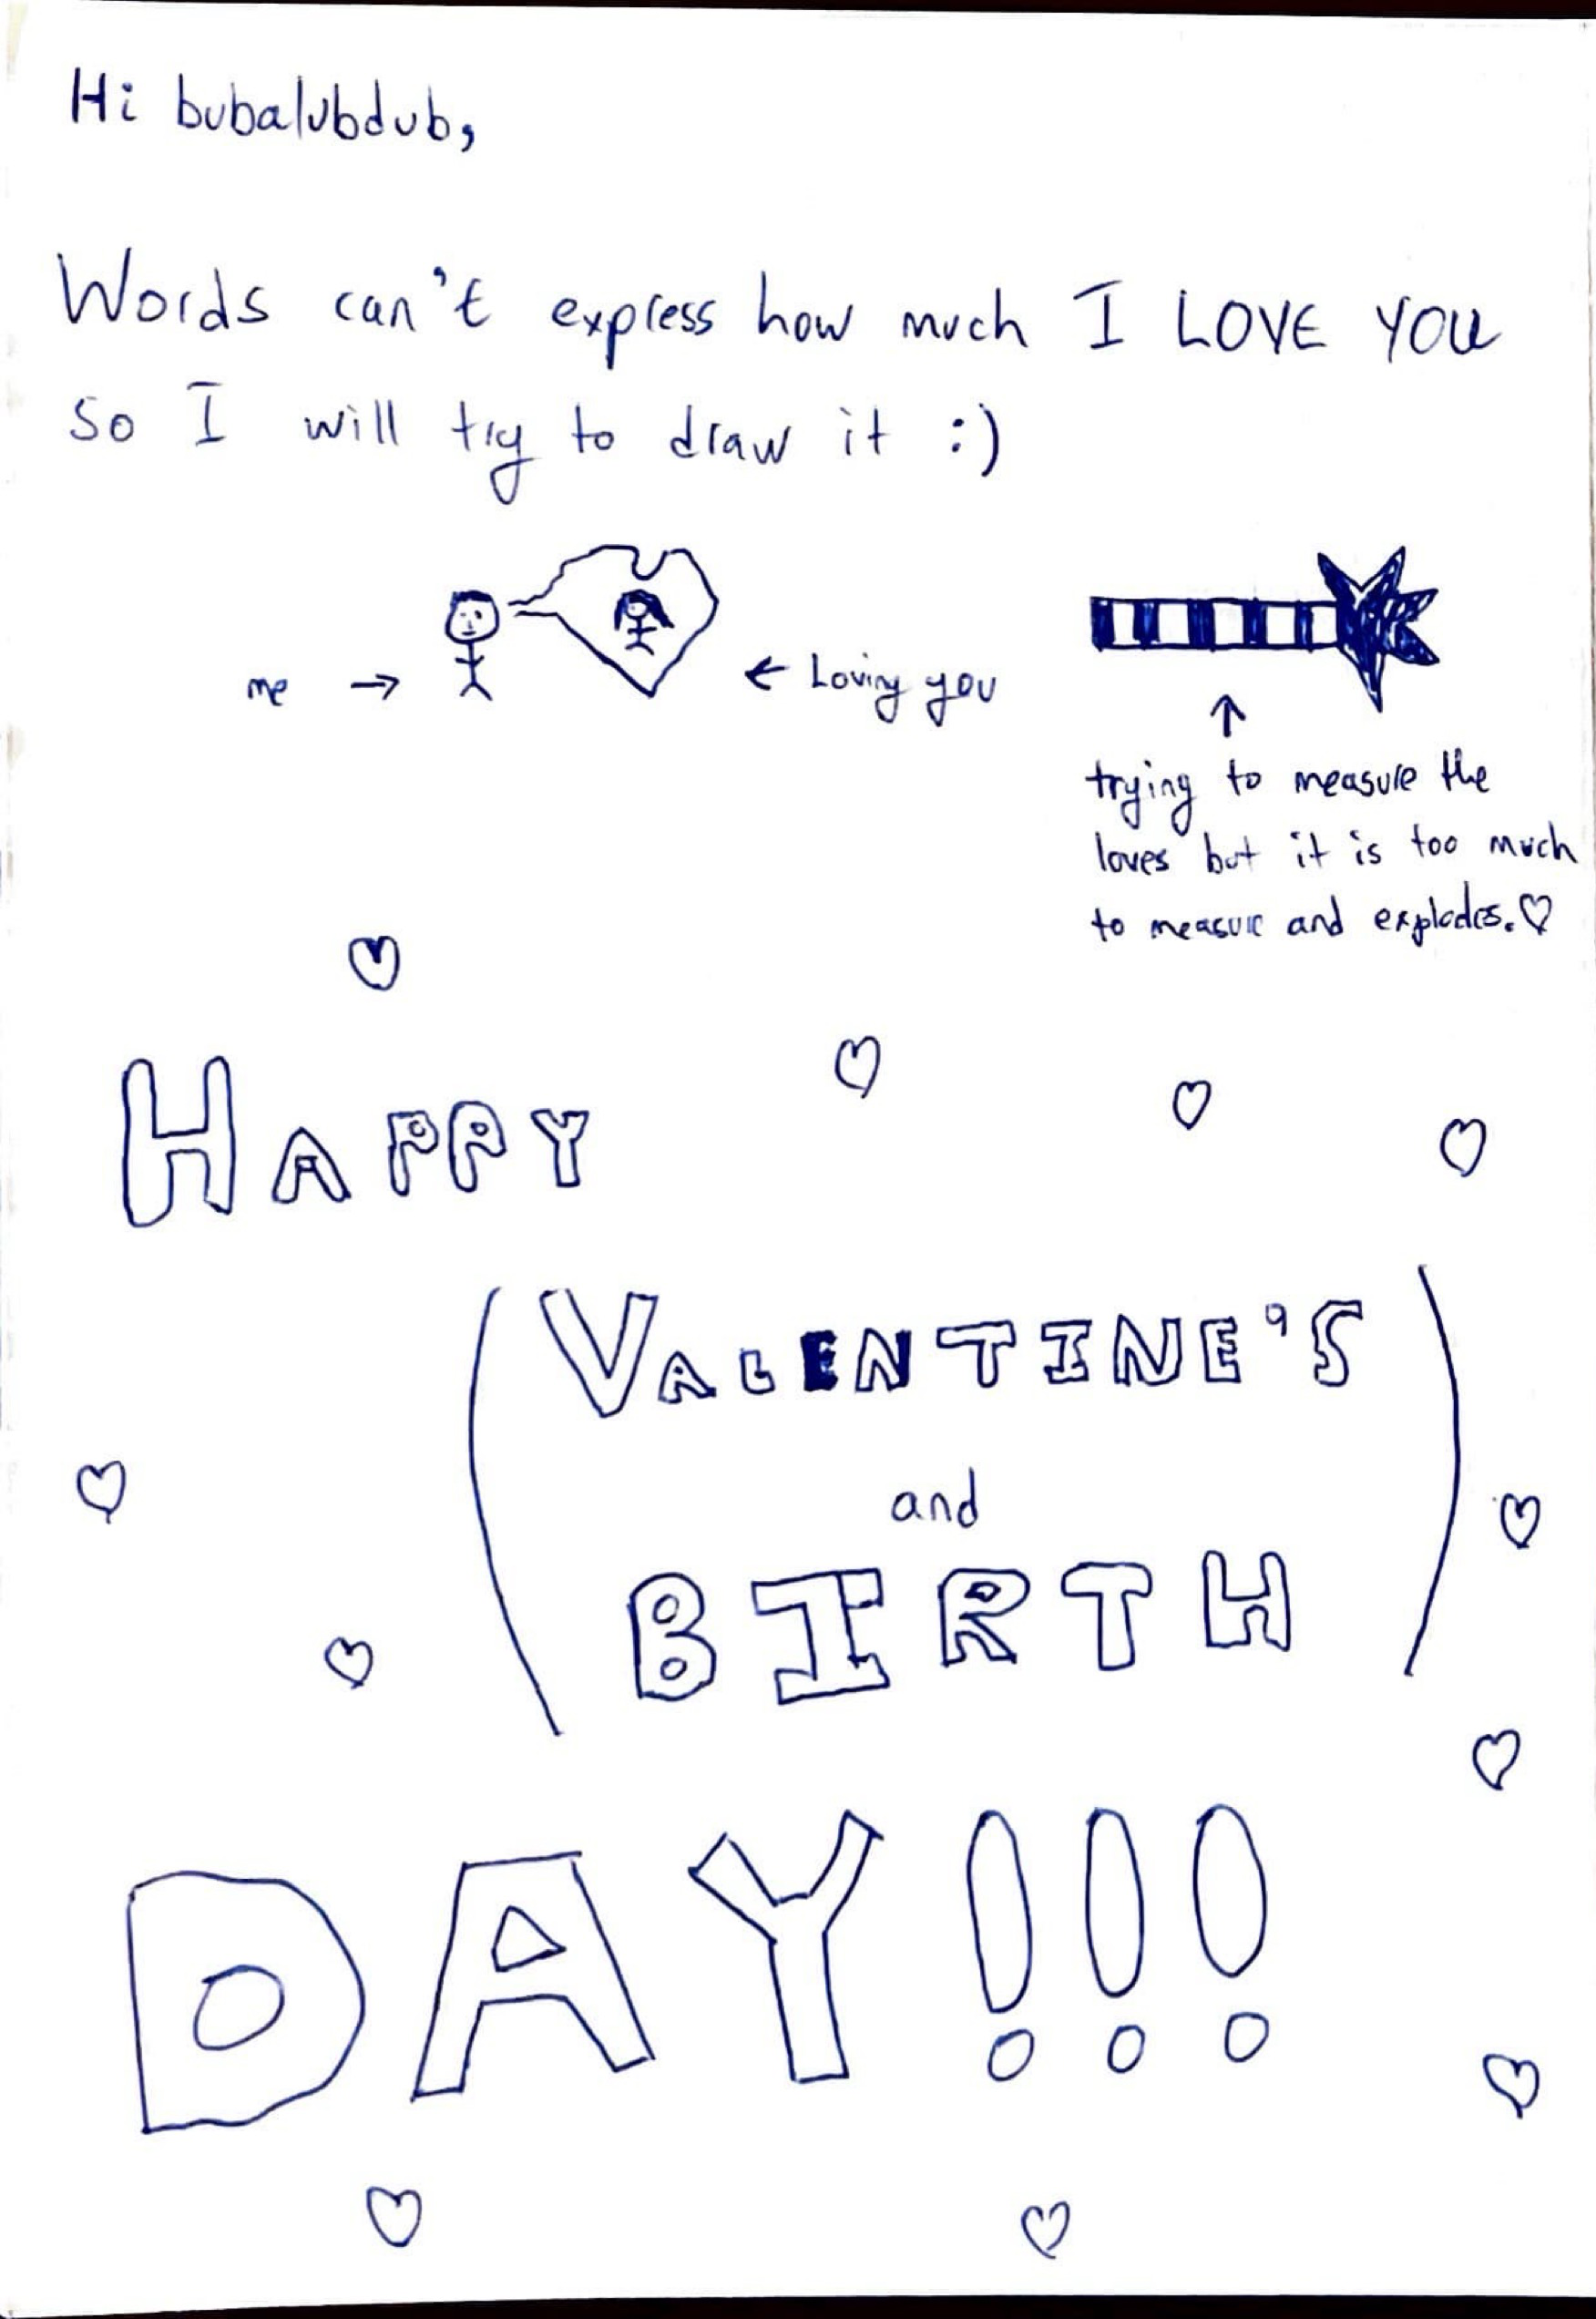 Hi bubalubdub,
Words can't express how much I LOVE YOU
so I will try to draw it :)
me → ← Loving you
↑
trying to measure the
loves but it is too much
to measure and explodes. ♡
HAPPY
(VALENTINE'S
and
BIRTH)
DAY!!!